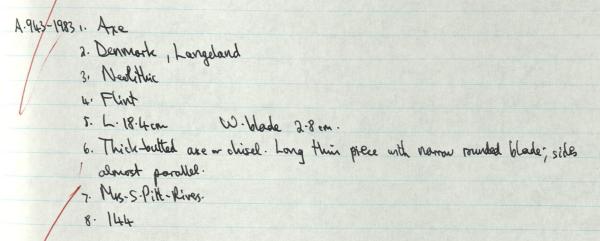 A.943-1983 1. Axe
2. Denmark, Langeland
3. Neolithic
4. Flint
5. L. 18.4cm W. blade 2.8cm.
6. Thick-butted axe or chisel. Long thin piece with narrow rounded blade; sides
almost parallel.
7. Mrs. S. Pitt-Rivers.
8. 144